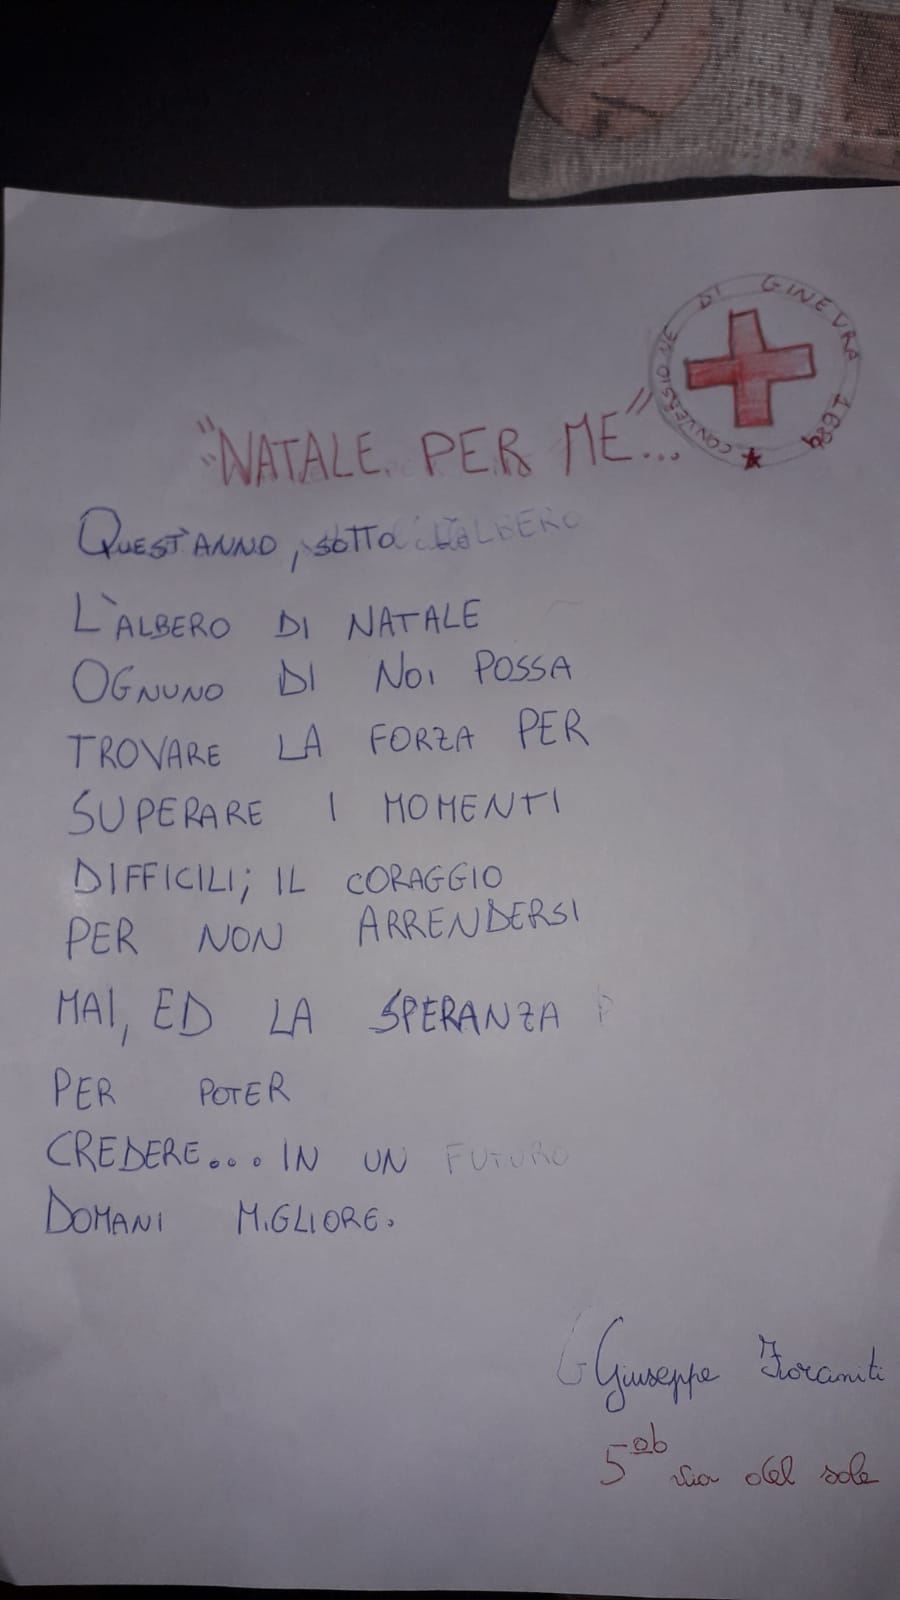 CONVESSIONE DI GINEVRA 1684
"NATALE PER ME"...
QUEST'ANNO, SOTTO L'ALBERO
L'ALBERO DI NATALE
OGNUNO DI NOI POSSA
TROVARE LA FORZA PER
SUPERARE I MOMENTI
DIFFICILI; IL CORAGGIO
PER NON ARRENDERSI
MAI, ED LA SPERANZA P
PER POTER
CREDERE... IN UN FUTURO
DOMANI MIGLIORE.
G Giuseppe Fioraniti
5ab via del sole